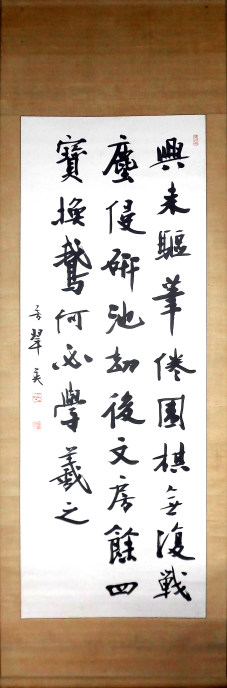 興來驅筆倦圍棋無復戰
塵侵硏池劫後文房餘四
寶換鵞何必學羲之
翠美